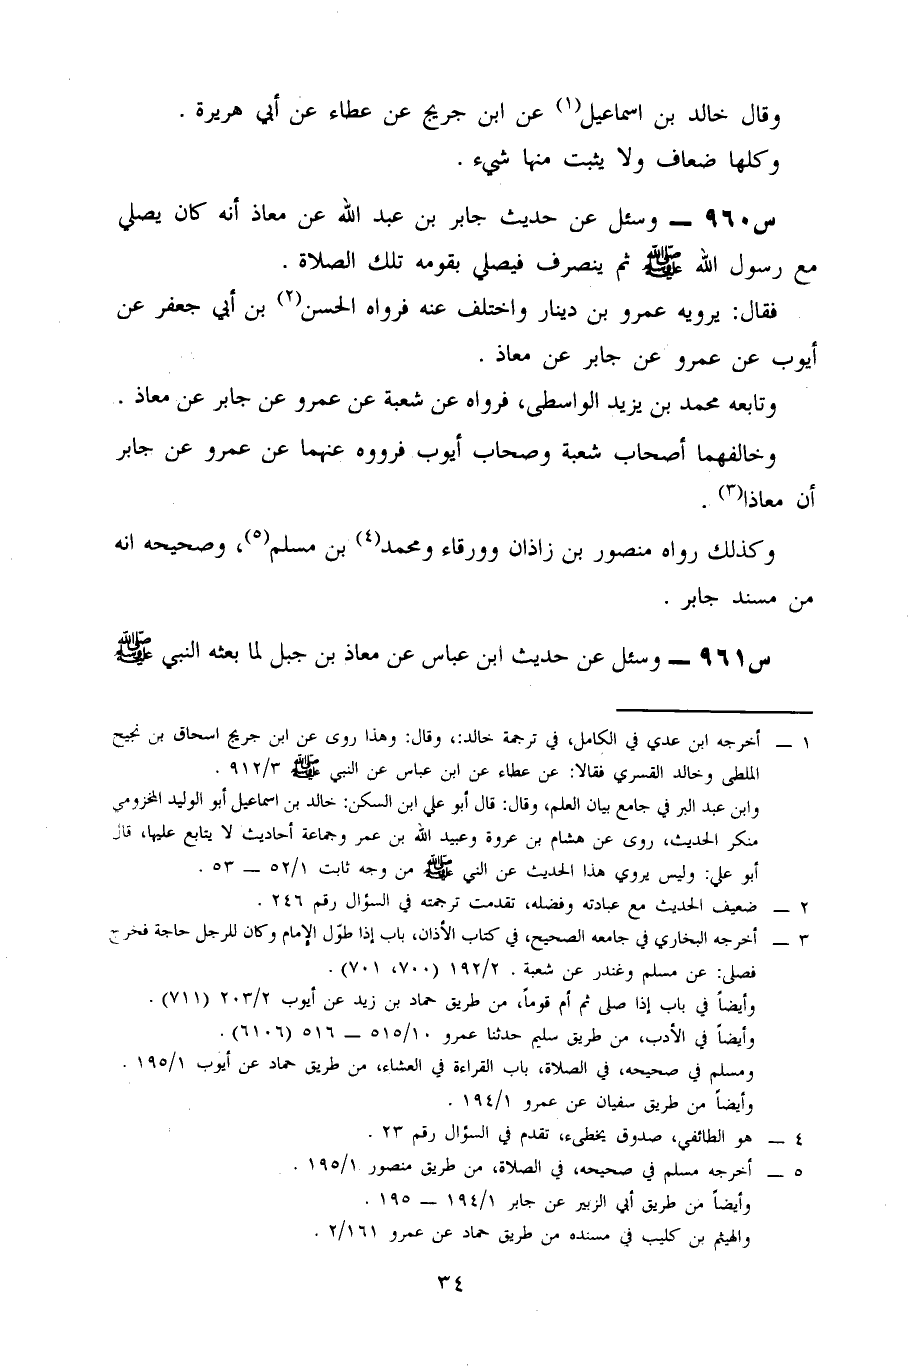 وقال خالد بن اسماعيل(١) عن ابن جريج عن عطاء عن أبي هريرة .
وكلها ضعاف ولا يثبت منها شيء .
س٩٦٠ ــ وسئل عن حديث جابر بن عبد الله عن معاذ أنه كان يصلي
مع رسول الله ﷺ ثم ينصرف فيصلي بقومه تلك الصلاة .
فقال: يرويه عمرو بن دينار واختلف عنه فرواه الحسن(٢) بن أبي جعفر عن
أيوب عن عمرو عن جابر عن معاذ .
وتابعه محمد بن يزيد الواسطى، فرواه عن شعبة عن عمرو عن جابر عن معاذ .
وخالفهما أصحاب شعبة وصحاب أيوب فرووه عنهما عن عمرو عن جابر
أن معاذا(٣) .
وكذلك رواه منصور بن زاذان وورقاء ومحمد(٤) بن مسلم(٥)، وصحيحه انه
من مسند جابر .
س٩٦١ ــ وسئل عن حديث ابن عباس عن معاذ بن جبل لما بعثه النبي ﷺ
١ ــ أخرجه ابن عدي في الكامل، في ترجمة خالد:، وقال: وهذا روى عن ابن جريج اسحاق بن نجيح
الملطي وخالد القسري فقالا: عن عطاء عن ابن عباس عن النبي ﷺ ٩١٢/٣ .
وابن عبد البر في جامع بيان العلم، وقال: قال أبو علي ابن السكن: خالد بن اسماعيل أبو الوليد المخزومي
منكر الحديث، روى عن هشام بن عروة وعبيد الله بن عمر وجماعة أحاديث لا يتابع عليها، قال
أبو علي: وليس يروي هذا الحديث عن النبي ﷺ من وجه ثابت ٥٢/١ ــ ٥٣ .
٢ ــ ضعيف الحديث مع عبادته وفضله، تقدمت ترجمته في السؤال رقم ٢٤٦ .
٣ ــ أخرجه البخاري في جامعه الصحيح، في كتاب الأذان، باب إذا طوّل الإمام وكان للرجل حاجة فخرج
فصلى: عن مسلم وغندر عن شعبة . ١٩٢/٢ (٧٠٠، ٧٠١) .
وأيضاً في باب إذا صلى ثم أم قوماً، من طريق حماد بن زيد عن أيوب ٢٠٣/٢ (٧١١) .
وأيضاً في الأدب، من طريق سليم حدثنا عمرو ٥١٥/١٠ ــ ٥١٦ (٦١٠٦) .
ومسلم في صحيحه، في الصلاة، باب القراءة في العشاء، من طريق حماد عن أيوب ١٩٥/١ .
وأيضاً من طريق سفيان عن عمرو ١٩٤/١ .
٤ ــ هو الطائفي، صدوق يخطىء، تقدم في السؤال رقم ٢٣ .
٥ ــ أخرجه مسلم في صحيحه، في الصلاة، من طريق منصور ١٩٥/١ .
وأيضاً من طريق أبي الزبير عن جابر ١٩٤/١ ــ ١٩٥ .
والهيثم بن كليب في مسنده من طريق حماد عن عمرو ٢/١٦١ .
٣٤